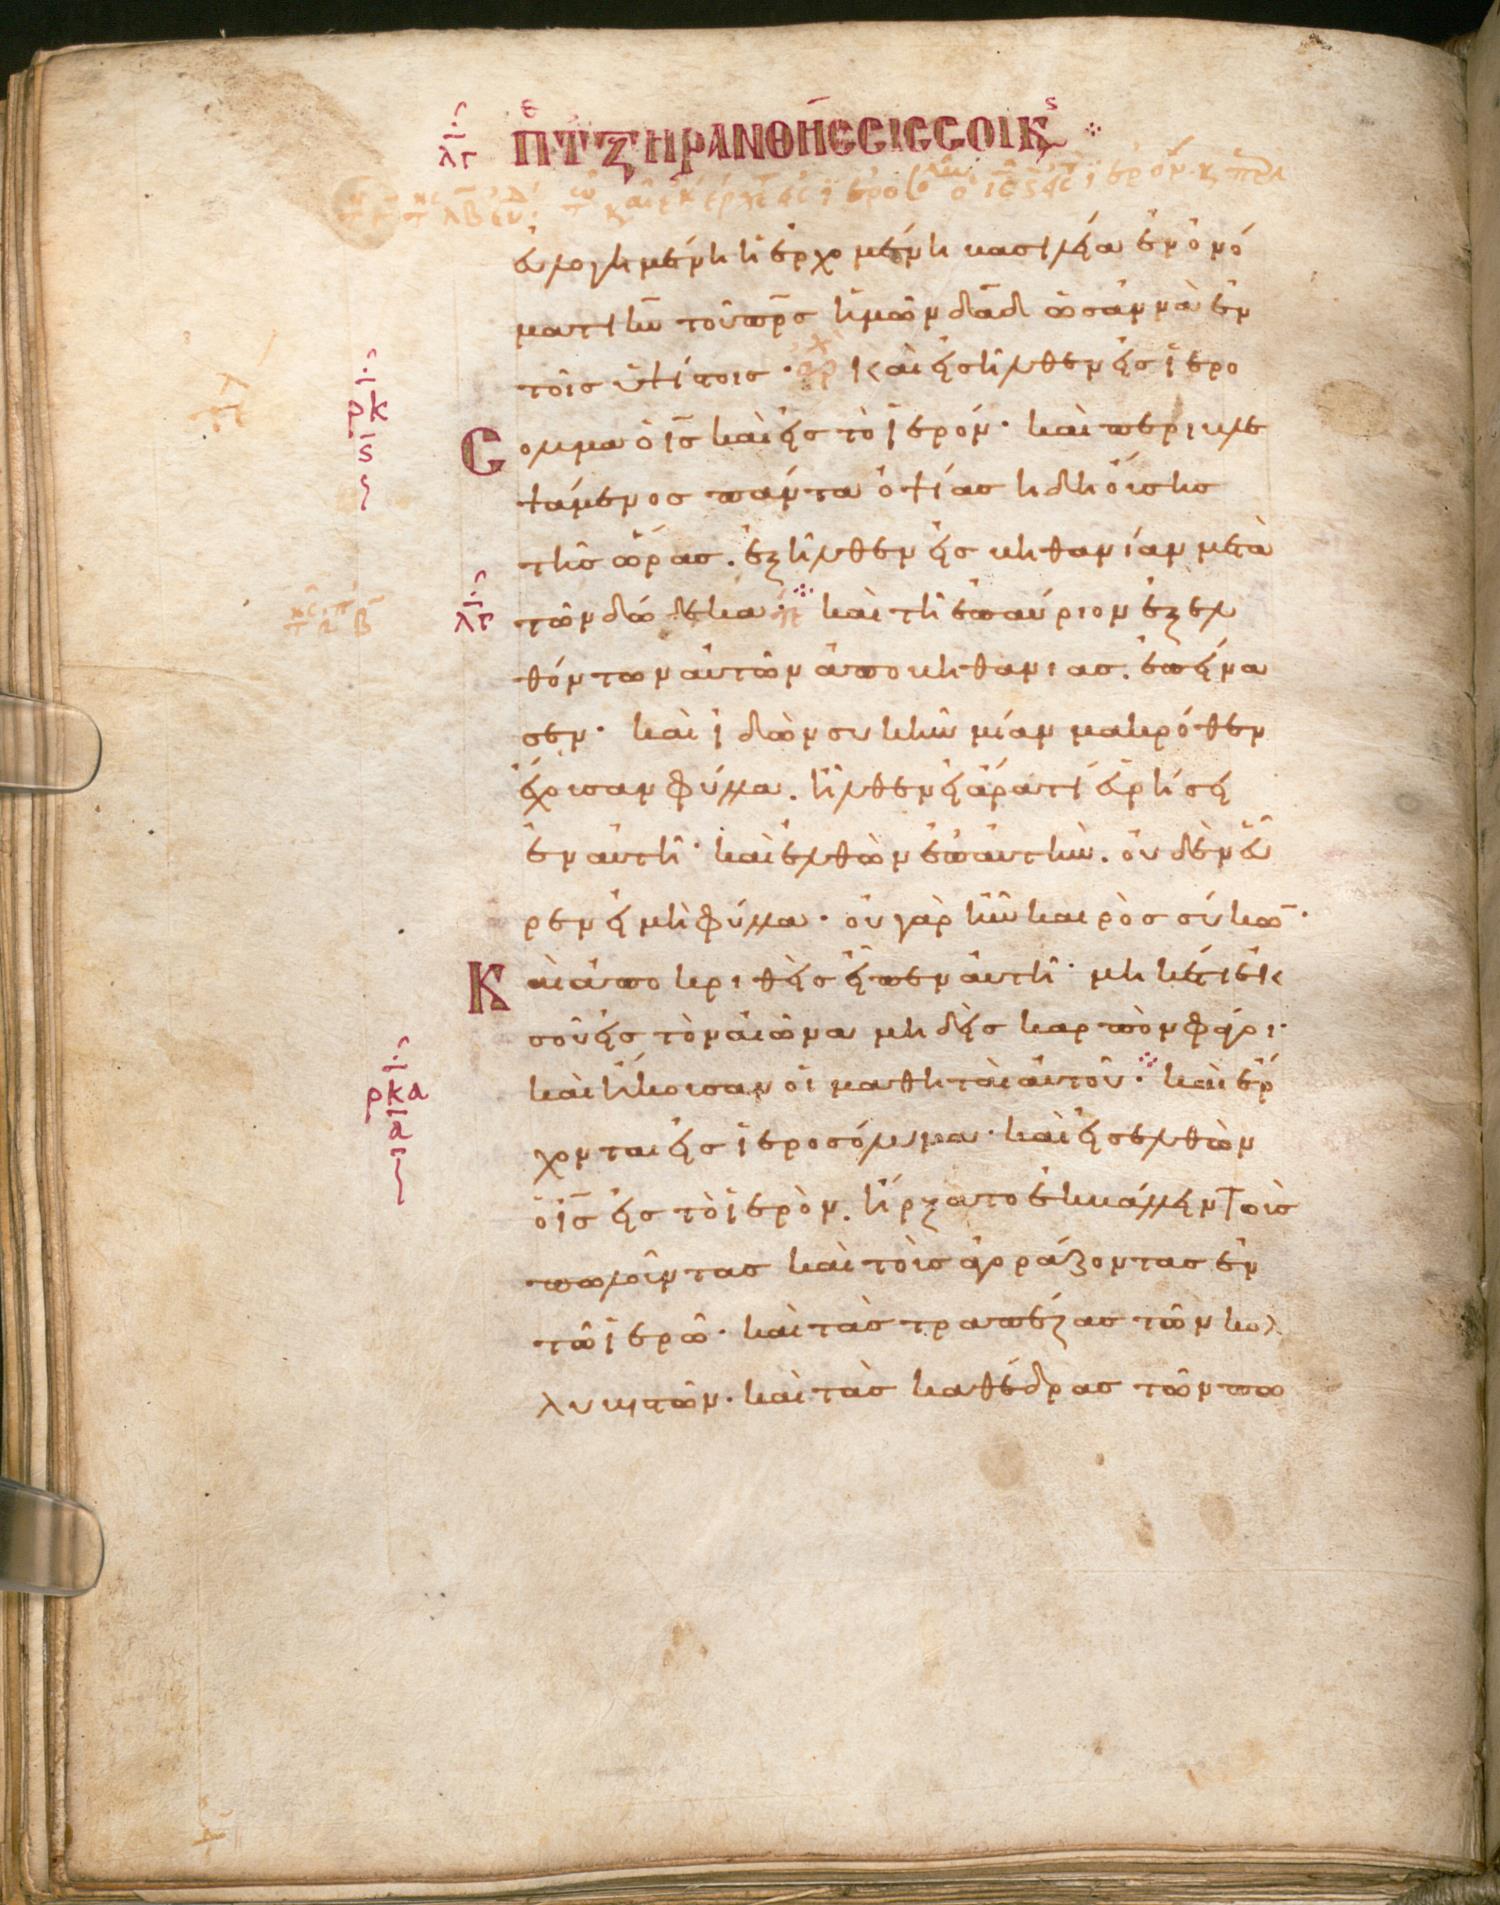 λγ ΠΕΤΞΗΡΑΝΘΗCCΙCCΟΙΚς
ευλογημένη ἡ ἐρχομένη βασιλεία ἐν ὀνό
ματι κῦ τοῦ πρς ἡμῶν δαδ ὡσαννὰ ἐν
τοῖς ὑψίστοις · αρχ Καὶ εἰσῆλθεν εἰς ἱερο
Cολυμα ὁ ις καὶ εἰς τὸ ἱερόν · καὶ περιβλε
ψάμενος πάντα ὀψίας ἤδη οὔσης
τῆς ὥρας . ἐξῆλθεν εἰς βηθανίαν μετὰ
τῶν δώδεκα · καὶ τῆ ἐπαύριον ἐξελ
θόντων αὐτῶν ἀπο βηθανιας . ἐπείνα
σεν · καὶ ἰδὼν συκῆν μίαν μακρόθεν
ἔχουσαν φύλλα . ἦλθεν εἰ ἄρα τὶ εὑρήσει
ἐν αὐτῆ · καὶ ἐλθὼν ἐπ αὐτὴν . οὐδὲν εὗ
ρεν εἰ μὴ φύλλα · οὐ γὰρ ἦν καιρὸς σύκω̄ ·
Καὶ ἀποκριθεὶς εἶπεν αὐτῆ · μηκέτι ἐκ
σοῦ εἰς τὸν αἰῶνα μηδεὶς καρπὸν φάγοι ·
καὶ ἤκουσαν οἱ μαθηταὶ αὐτοῦ · καὶ ἔρ
χονται εἰς ἱεροσόλυμα · καὶ εἰσελθὼν
ὁ ις εἰς τὸ ἱερὸν . ἤρξατο ἐκβάλλειν τοὺς
πωλοῦντας καὶ τοὺς ἀγοράζοντας ἐν
τῶ ἱερῶ · καὶ τὰς τραπέζας τῶν κολ
λυβιστῶν · καὶ τὰς καθέδρας τῶν πω
ρκ
ς
λγ
ρκα
α